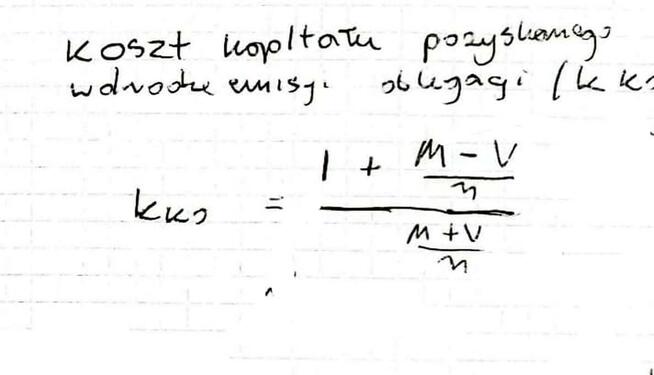 koszt kapitału pozyskanego
w drodze emisji obligacji (k ko
kko = (1 + (M - V)/n) / ((M + V)/n)